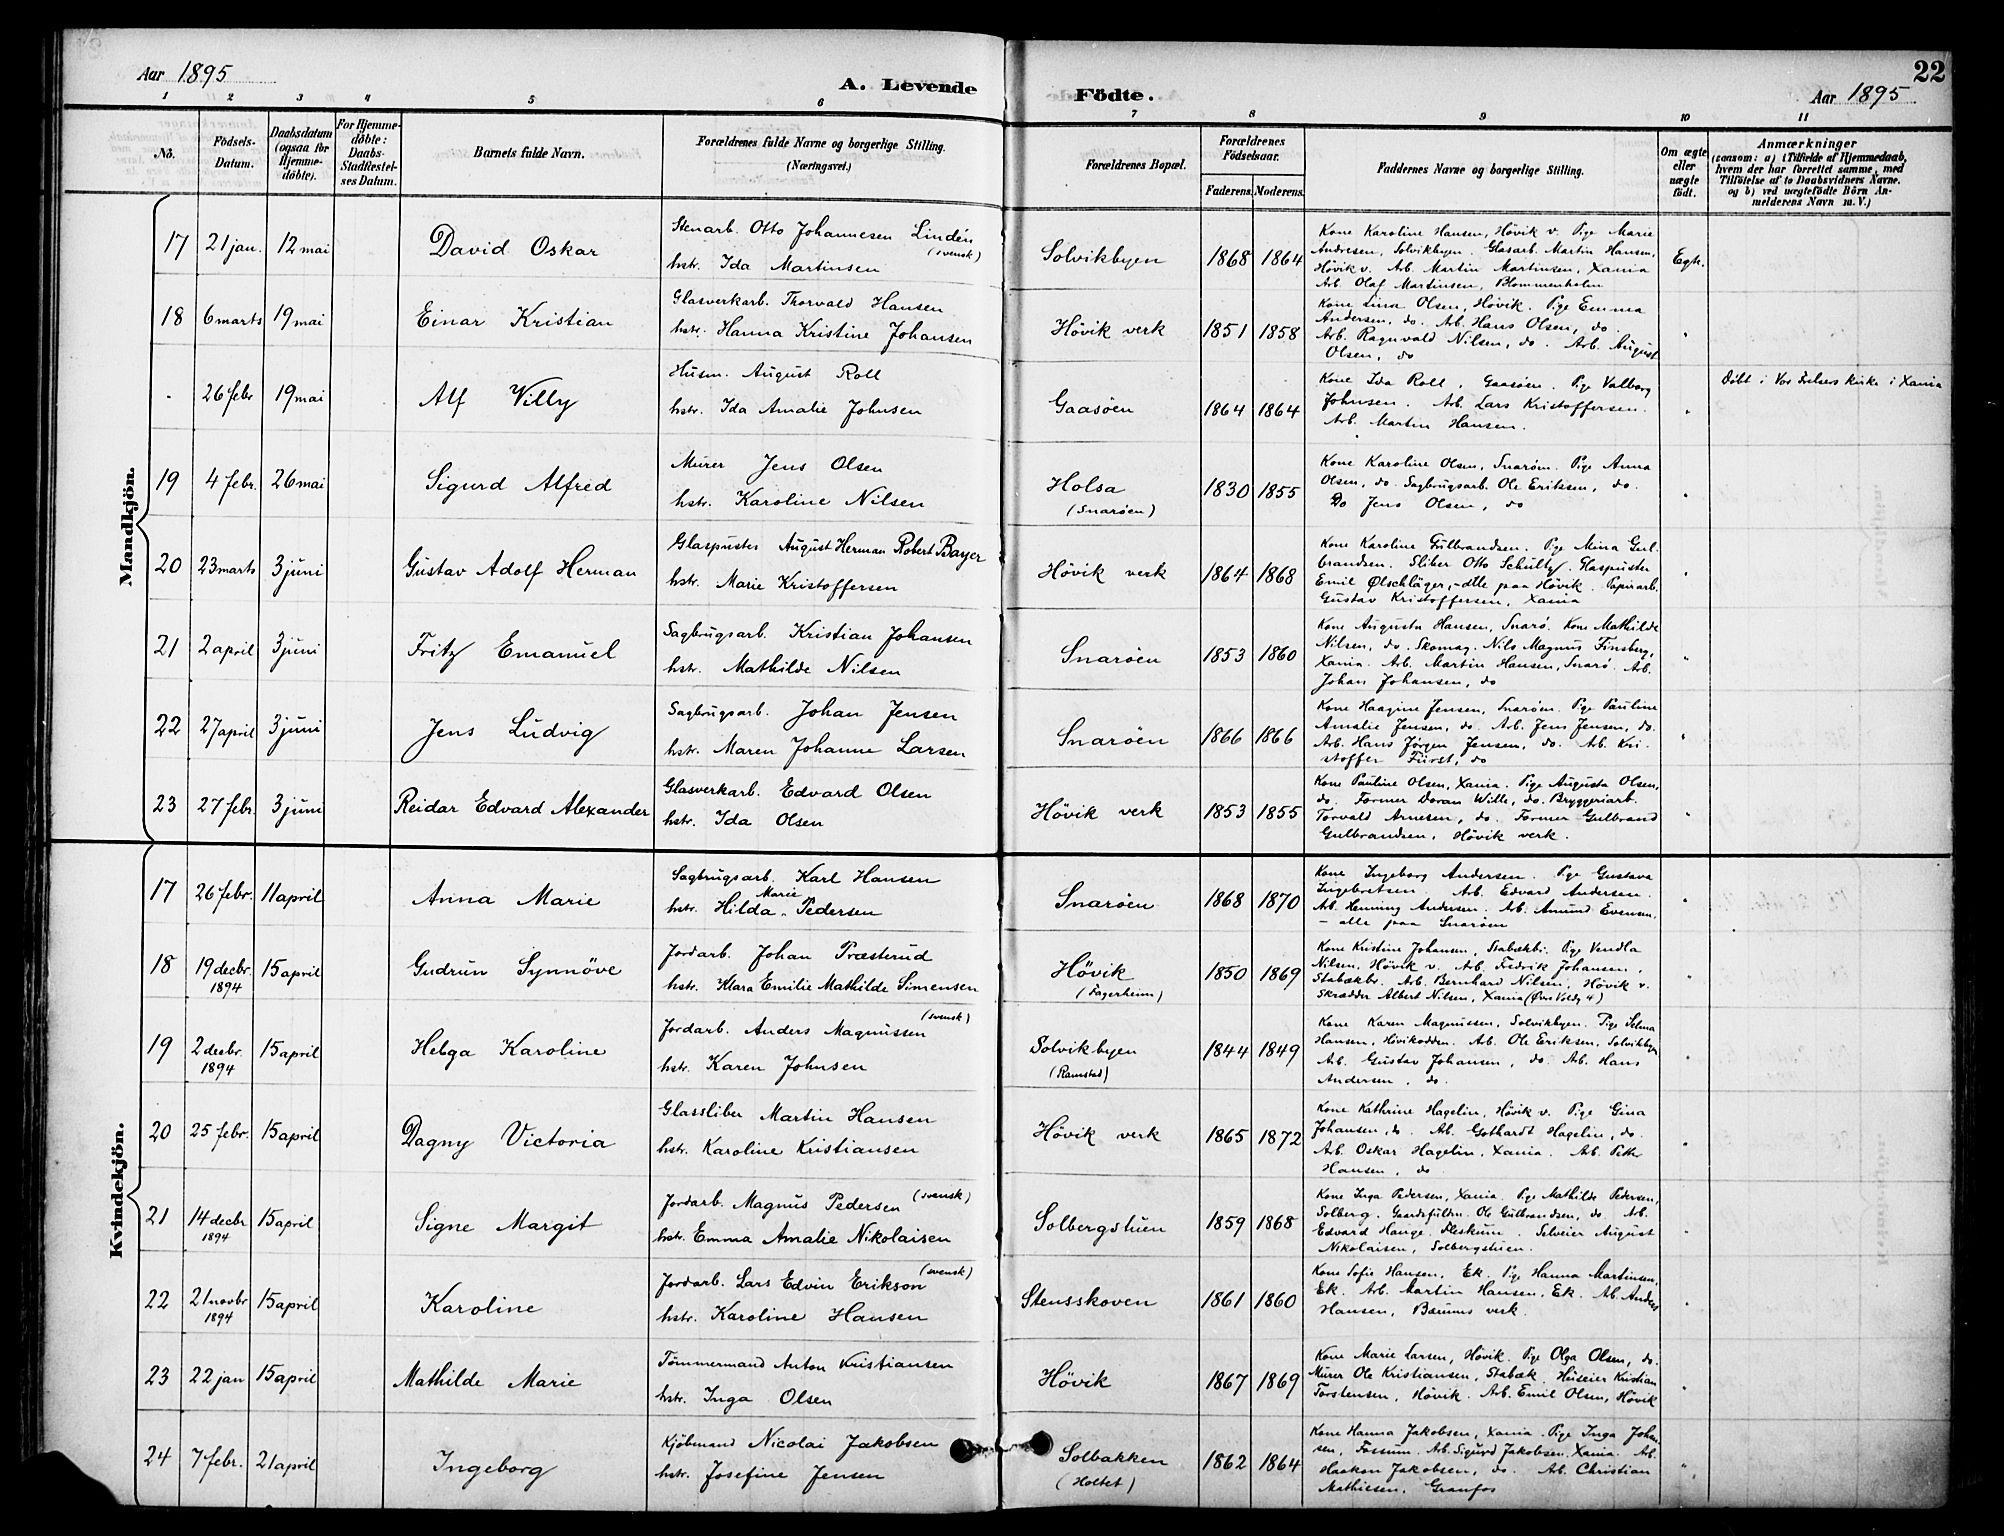 Aar 1895
A. Levende Födte.
22
Aar 1895
1 2 3 4 5 6 7 8 9 10 11
No.
Födsels-Datum.
Daabsdatum (ogsaa for Hjemme-döbte).
For Hjemme-döbte: Daabs-Stadfæstel-ses Datum.
Barnets fulde Navn.
Forældrenes fulde Navne og borgerlige Stilling. (Næringsvei.)
Forældrenes Bopæl.
Forældrenes Födselsaar.
Faderens. Moderens.
Faddernes Navne og borgerlige Stilling.
Om ægte eller uægte födt.
Anmærkninger
(saasom: a) i Tilfælde af Hjemmedaab,
hvem der har forrettet samme, med
Tilföielse af to Daabsvidners Navne,
og b) ved uægtefödte Börn An-
melderens Navn m. V.)
Mandkjön.
17 21 jan. 12 mai David Oskar
Stenarb. Otto Johannesen Lindén (svensk)
hstr. Ida Martinsen
Solvikbyen 1868 1864
Kone Karoline Hansen, Hövik v. Pige Marie
Andresen, Solvikbyen. Glasarb. Martin Hansen,
Hövik v. Arb. Martin Martinsen, Xania
Arb. Olaf Martinsen, Blommenholm
Egte.
18 6 marts 19 mai Einar Kristian
Glasverkarb. Thorvald Hansen
hstr. Hanna Kristine Johansen
Hövik verk 1851 1858
Kone Lina Olsen, Hövik. Pige Emma
Andersen, do. Arb. Hans Olsen, do.
Arb. Ragnvald Nilsen, do. Arb. August
Olsen, do
"
. 26 febr 19 mai Alf Villy
Husm. August Roll
hstr. Ida Amalie Johnsen
Gaasöen 1864 1864
Kone Ida Roll, Gaasöen. Pige Valborg
Johnsen. Arb. Lars Kristoffersen.
Arb. Martin Hansen.
"
Döbt i Vor Frelsers kirke i Xania
19 4 febr. 26 mai Sigurd Alfred
Murer Jens Olsen
hstr. Karoline Nilsen
Holsa (Snaröen) 1830 1855
Kone Karoline Olsen, Snaröen. Pige Anna
Olsen, do. Sagbrugsarb. Ole Eriksen, do.
Do Jens Olsen, do
"
20 23 marts 3 juni Gustav Adolf Herman
Glaspuster August Herman Robert Bayer
hstr. Marie Kristoffersen
Hövik verk 1864 1868
Kone Karoline Gulbrandsen. Pige Mina Gul-
brandsen. Sliber Otto Schultz. Glaspuster
Emil Ølschläger, - alle paa Hövik. Papirarb.
Gustav Kristoffersen, Xania
"
21 2 april 3 juni Fritz Emanuel
Sagbrugsarb. Kristian Johansen
hstr. Mathilde Nilsen
Snaröen 1853 1860
Kone Augusta Hansen, Snarö. Kone Mathilde
Nilsen, do. Skomag. Nils Magnus Finsberg,
Xania. Arb. Martin Hansen, Snarö. Arb.
Johan Johansen, do
"
22 27 april 3 juni Jens Ludvig
Sagbrugsarb. Johan Jensen
hstr. Maren Johanne Larsen
Snaröen 1866 1866
Kone Haagine Jensen, Snaröen. Pige Pauline
Amalie Jensen, do. Arb. Jens Jensen, do.
Arb. Hans Jørgen Jensen, do. Arb. Kri-
stoffer Fürst, do
"
23 27 febr. 3 juni Reidar Edvard Alexander
Glasverkarb. Edvard Olsen
hstr. Ida Olsen
Hövik verk 1853 1855
Kone Pauline Olsen, Xania. Pige Augusta Olsen,
do. Former Doran Wille, do. Bryggeriarb.
Torvald Arnesen, do. Former Gulbrand
Gulbrandsen, Hövik verk.
"
Kvindekjön.
17 26 febr. 11 april Anna Marie
Sagbrugsarb. Karl Hansen
hstr. Hilda Marie Pedersen
Snaröen 1868 1870
Kone Ingeborg Andersen. Pige Gustava
Ingebretsen. Arb. Edvard Andersen.
Arb. Henning Andersen. Arb. Amund Evensen,
- alle paa Snaröen
"
18 19 decbr. 1894 15 april Gudrun Synnöve
Jordarb. Johan Præsterud
hstr. Klara Emilie Mathilde Simensen
Hövik (Fagerheim) 1850 1869
Kone Kristine Johansen, Stabækbr. Pige Vendla
Nilsen, Hövik v. Arb. Fredrik Johansen,
Stabækbr. Arb. Bernhard Nilsen, Hövik v.
Skrædder Albert Nilsen, Xania (Øvre Voldg 4)
"
19 2 decbr. 1894 15 april Helga Karoline
Jordarb. Anders Magnussen (svensk)
hstr. Karen Johnsen
Solvikbyen (Ramstad) 1844 1849
Kone Karen Magnussen, Solvikbyen. Pige Selma
Hansen, Hövikodden. Arb. Ole Eriksen, Solvikbyen
Arb. Gustav Johansen, do. Arb. Hans
Andersen, do.
"
20 25 febr. 15 april Dagny Victoria
Glassliber Martin Hansen
hstr. Karoline Kristiansen
Hövik verk 1865 1872
Kone Kathrine Hagelin, Hövik v. Pige Gina
Johansen, do. Arb. Gothardt Hagelin, do.
Arb. Oskar Hagelin, Xania. Arb. Petter
Hansen, do
"
21 14 decbr 1894 15 april Signe Margit
Jordarb. Magnus Pedersen (svensk)
hstr. Emma Amalie Nikolaisen
Solbergstuen 1859 1868
Kone Inga Pedersen, Xania. Pige Mathilde Pedersen,
Solberg. Gaardsfuldm. Ole Gulbrandsen, do. Arb.
Edvard Hauge, Fleskum. Selveier August
Nikolaisen, Solbergstuen.
"
22 21 novbr 1894 15 april Karoline
Jordarb. Lars Edvin Erikson (svensk)
hstr. Karoline Hansen
Stensskoven 1861 1860
Kone Sofie Hansen, Ek. Pige Hanna Martinsen,
Ek. Arb. Martin Hansen, Ek. Arb. Anders
Hansen, Bærums verk.
"
23 22 jan 15 april Mathilde Marie
Tömmermand Anton Kristiansen
hstr. Inga Olsen
Hövik 1867 1869
Kone Marie Larsen, Hövik. Pige Olga Olsen, do.
Murer Ole Kristiansen, Stabæk. Huseier Kristian
Torstensen, Hövik. Arb. Emil Olsen, Hövik
"
24 7 febr. 21 april Ingeborg
Kjöbmand Nicolai Jakobsen
hstr. Josefine Jensen
Solbakken (Holtet) 1862 1864
Kone Hanna Jakobsen, Xania. Pige Inga Johan-
sen, Fossum. Arb. Sigurd Jakobsen, Xania. Arb.
Haakon Jakobsen, do. Arb. Christian
Mathiesen, Granfos
"